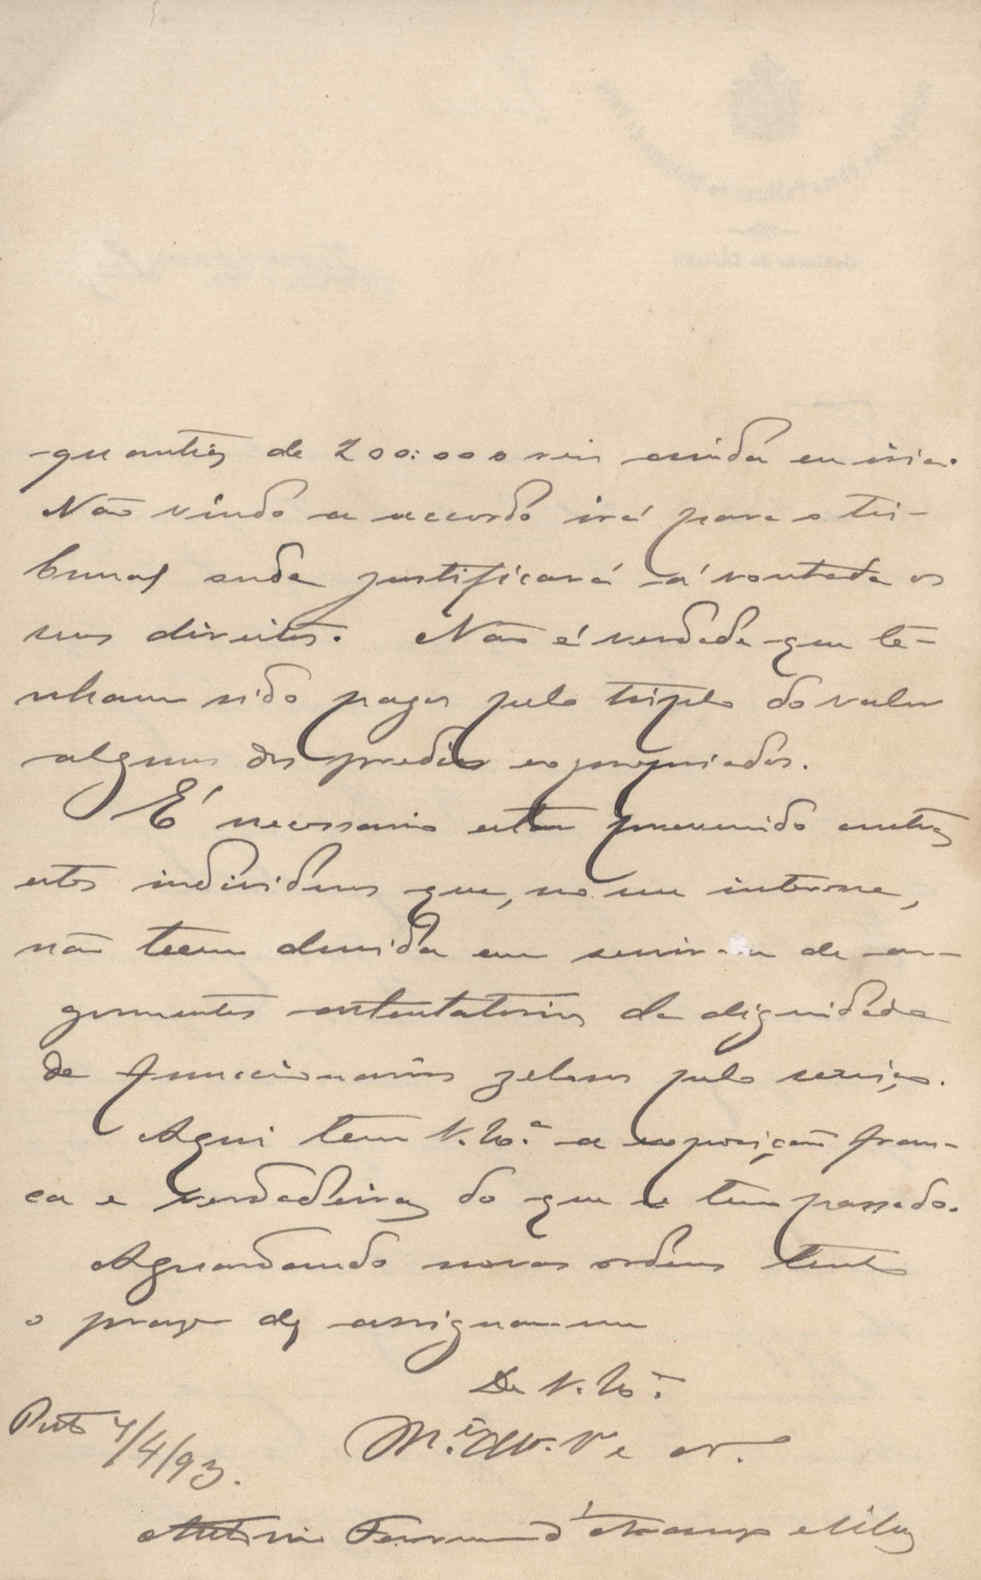 quantia de 200:000 reis ainda em ima.
Não vindo a accordo irá para o tri-
bunal onde justificará á vontade os
seus direitos. Não é verdade que te-
nham sido pagos pelo triplo do valor
alguns dos predios expropriados.
É necessario estar prevenido contra
estes individuos que, no seu interesse,
não teem duvida em servir-se de ar-
gumentos attentatorios da dignidade
de funccionarios zelosos pelo serviço.
Aqui tem V. Ex.ª a exposição fran-
ca e verdadeira do que se tem passado.
Aguardando novas ordens tenho
o prazer de assignar-me
De V. Ex.ª
M.to At.to V.or e
Porto 4/4/93.
Antonio Ferreira d'Araujo e Silva